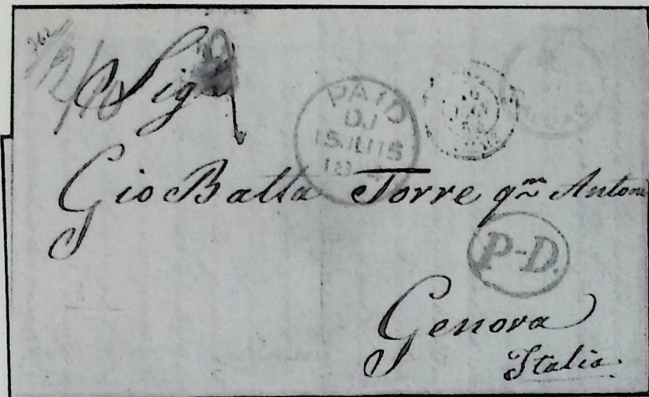 Sigr
PAID
DJ
15 JU 15
18
Gio Batta Torre qm Antoni
P-D.
Genova
Italia